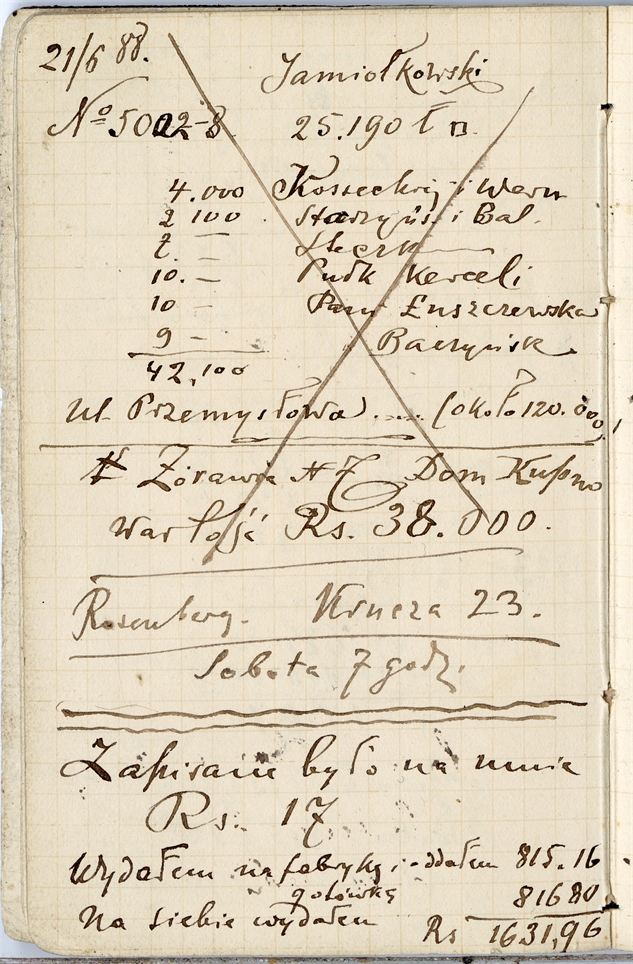 21/6 88.
Jamiołkowski
Nº 5002-8. 25.190 ł
4.000 Kossecki i Wern
2 100 Starzyńs. i Bal.
2. —
10. — Pułk Kerceli
10 — Pany Łuszczewska
9 — Baczyńsk
42,100
Ul. Przemysłowa .... (około 120.000)
Żórawia № 7 Dom Kupno
Wartość Rs. 38.000.
Rosenberg. Krucza 23.
Sobota 7 godz.
Zapisane było na mnie
Rs. 17
Wydałem na fabrykę i oddałem 815.16
gotówkę 816 80
Na siebie wydałem Rs 1631,96